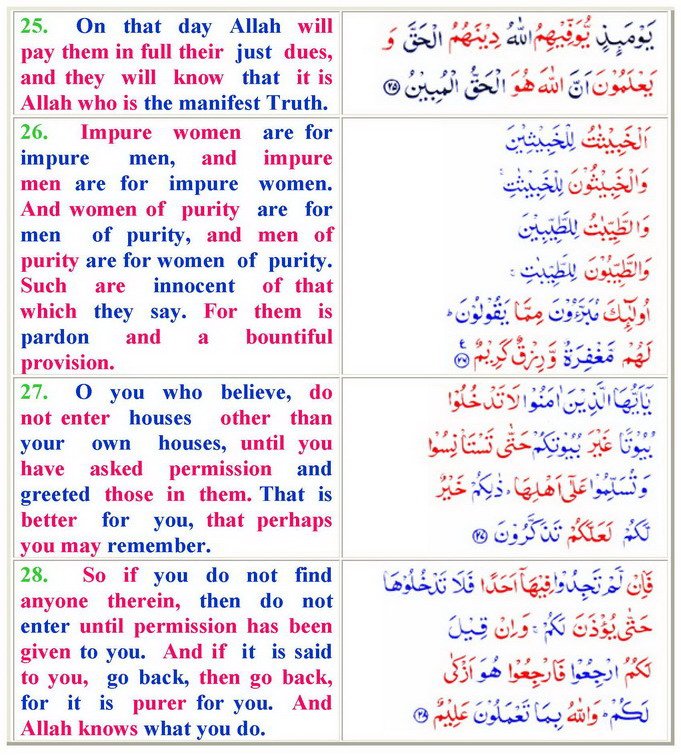 25. On that day Allah will
pay them in full their just dues,
and they will know that it is
Allah who is the manifest Truth.
يَوْمَئِذٍ يُّوَفِّيْهِمُ اللّٰهُ دِيْنَهُمُ الْحَقَّ وَ
يَعْلَمُوْنَ اَنَّ اللّٰهَ هُوَ الْحَقُّ الْمُبِيْنُ ۝۲۵
26. Impure women are for
impure men, and impure
men are for impure women.
And women of purity are for
men of purity, and men of
purity are for women of purity.
Such are innocent of that
which they say. For them is
pardon and a bountiful
provision.
اَلْخَبِيْثٰتُ لِلْخَبِيْثِيْنَ
وَالْخَبِيْثُوْنَ لِلْخَبِيْثٰتِ ۚ
وَالطَّيِّبٰتُ لِلطَّيِّبِيْنَ
وَالطَّيِّبُوْنَ لِلطَّيِّبٰتِ ۚ
اُولٰٓئِكَ مُبَرَّءُوْنَ مِمَّا يَقُوْلُوْنَ ؕ
لَهُمْ مَّغْفِرَةٌ وَّرِزْقٌ كَرِيْمٌ ۝۲۶ ع
27. O you who believe, do
not enter houses other than
your own houses, until you
have asked permission and
greeted those in them. That is
better for you, that perhaps
you may remember.
يٰۤاَيُّهَا الَّذِيْنَ اٰمَنُوْا لَا تَدْخُلُوْا
بُيُوْتًا غَيْرَ بُيُوْتِكُمْ حَتّٰى تَسْتَاْنِسُوْا
وَتُسَلِّمُوْا عَلٰٓى اَهْلِهَا ؕ ذٰلِكُمْ خَيْرٌ
لَّكُمْ لَعَلَّكُمْ تَذَكَّرُوْنَ ۝۲۷
28. So if you do not find
anyone therein, then do not
enter until permission has been
given to you. And if it is said
to you, go back, then go back,
for it is purer for you. And
Allah knows what you do.
فَاِنْ لَّمْ تَجِدُوْا فِيْهَاۤ اَحَدًا فَلَا تَدْخُلُوْهَا
حَتّٰى يُؤْذَنَ لَكُمْ ۚ وَاِنْ قِيْلَ
لَكُمُ ارْجِعُوْا فَارْجِعُوْا هُوَ اَزْكٰى
لَكُمْ ؕ وَاللّٰهُ بِمَا تَعْمَلُوْنَ عَلِيْمٌ ۝۲۸